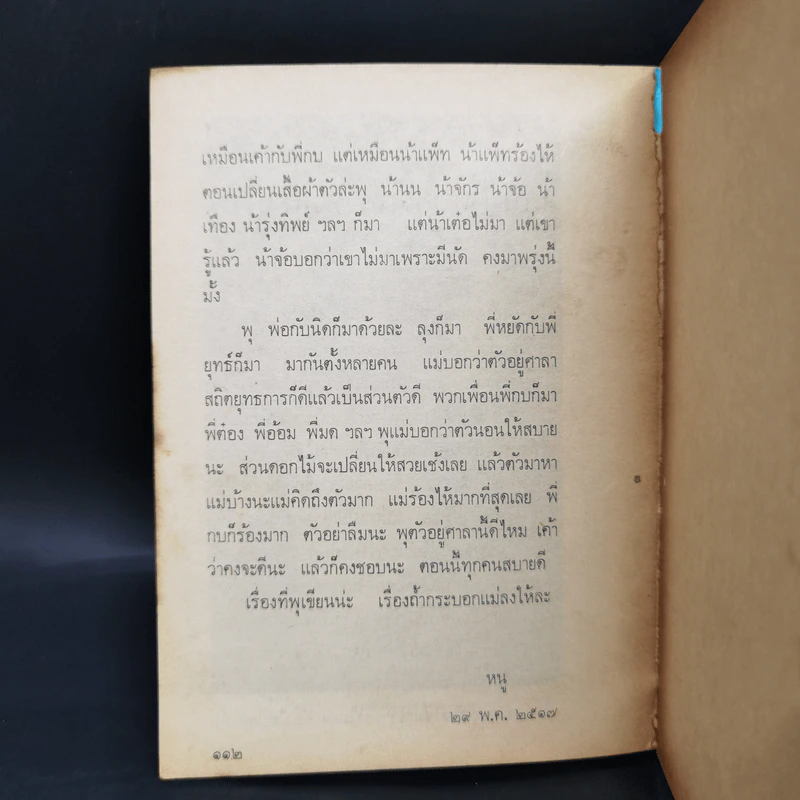 เหมือนเค้ากับพี่กบ แต่เหมือนน้าแพ็ท น้าแพ็ทร้องไห้
ตอนเปลี่ยนเสื้อผ้าตัวล่ะพุ น้านน น้าจักร น้าจ้อ น้า
เทือง น้ารุ่งทิพย์ ฯลฯ ก็มา แต่น้าเต๋อไม่มา แต่เขา
รู้แล้ว น้าจ้อบอกว่าเขาไม่มาเพราะมีนัด คงมาพรุ่งนี้
มั้ง
พุ พ่อกับนิดก็มาด้วยละ ลุงก็มา พี่หยัดกับพี่
ยุทธ์ก็มา มากันตั้งหลายคน แม่บอกว่าตัวอยู่ศาลา
สถิตยุทธการก็ดีแล้วเป็นส่วนตัวดี พวกเพื่อนพี่กบก็มา
พี่ต๋อง พี่อ้อม พี่มด ฯลฯ พุแม่บอกว่าตัวนอนให้สบาย
นะ ส่วนดอกไม้จะเปลี่ยนให้สวยเช้งเลย แล้วตัวมาหา
แม่บ้างนะแม่คิดถึงตัวมาก แม่ร้องไห้มากที่สุดเลย พี่
กบก็ร้องมาก ตัวอย่าลืมนะ พุตัวอยู่ศาลานี้ดีไหม เค้า
ว่าคงจะดีนะ แล้วก็คงชอบนะ ตอนนี้ทุกคนสบายดี
เรื่องที่พุเขียนน่ะ เรื่องถ้ำกระบอกแม่ลงให้ละ
หนู
๒๙ พ.ค. ๒๕๑๗
๑๑๒